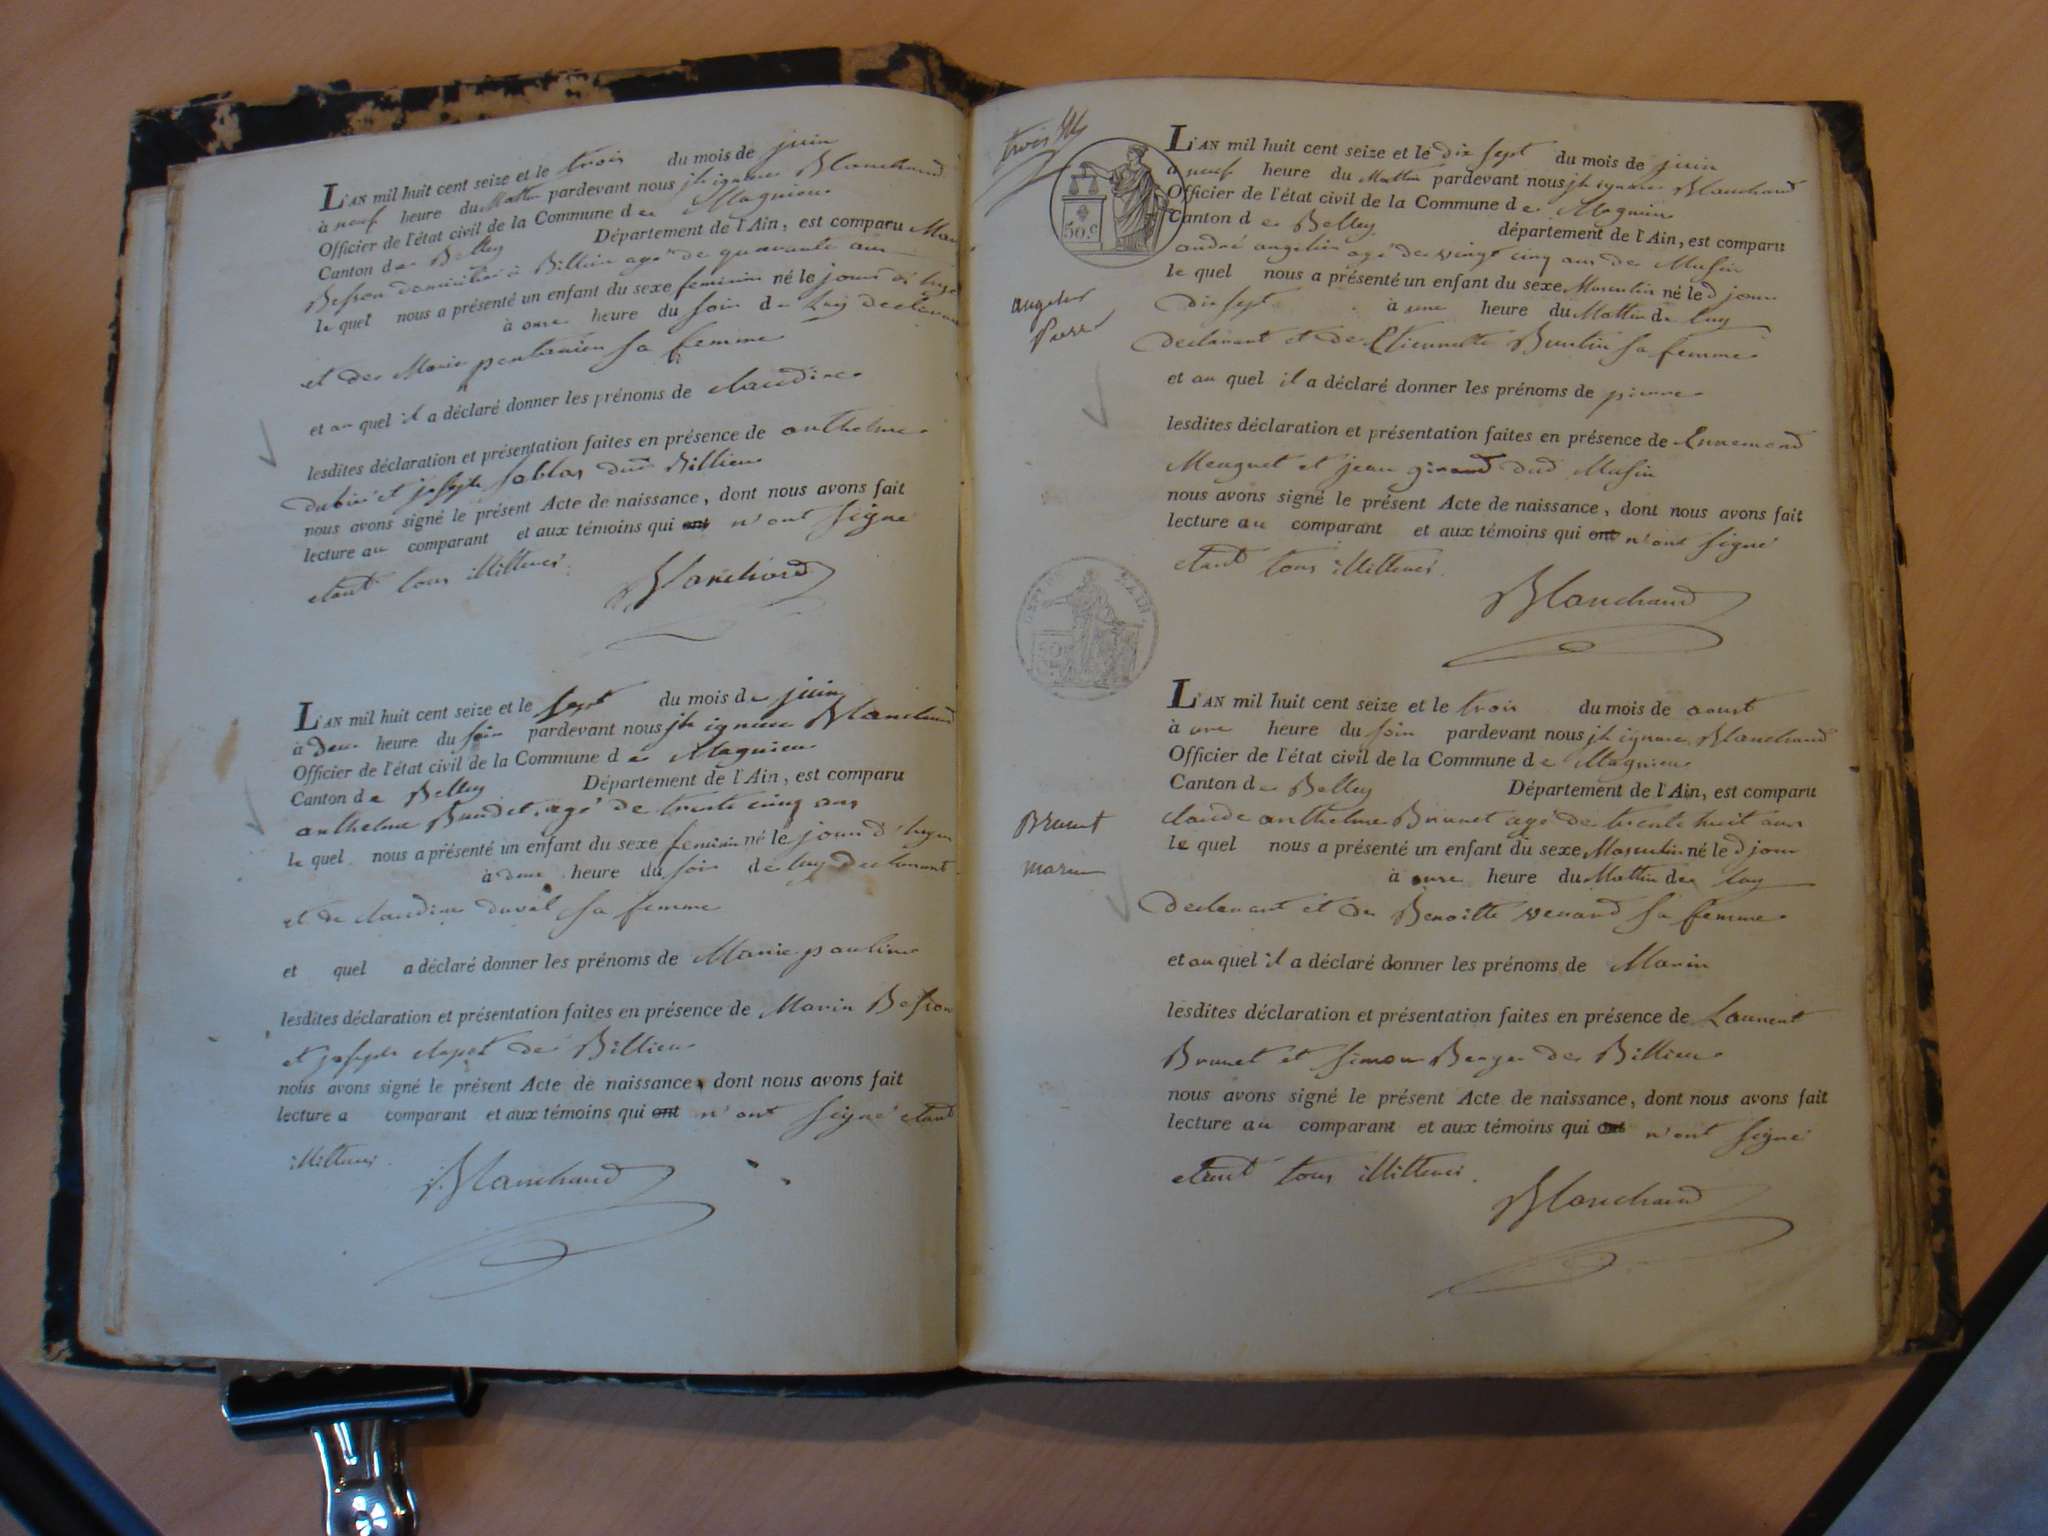 L'AN mil huit cent seize et le trois du mois de juin
à neuf heure du Mattin pardevant nous jh ignace Blanchard
Officier de l'état civil de la Commune de Magnieu
Canton de Belley Département de l'Ain, est comparu
Besson domicilié à Billieu agé de quarante ans
le quel nous a présenté un enfant du sexe feminin né le jour d'hyer
à onze heure du soir de luy declarant
et de Marie sa femme
et au quel il a déclaré donner les prénoms de claudine
lesdites déclaration et présentation faites en présence de anthelme
et joseph sablas dud Billieu
nous avons signé le présent Acte de naissance, dont nous avons fait
lecture au comparant et aux témoins qui ont n'ont signé
etant tous illitteres
Blanchard
L'AN mil huit cent seize et le sept du mois de juin
à deux heure du soir pardevant nous jh ignace Blanchard
Officier de l'état civil de la Commune de Magnieu
Canton de Belley Département de l'Ain, est comparu
anthelme agé de trente cinq ans
le quel nous a présenté un enfant du sexe feminin né le jour d'hyer
à deux heure du soir de luy declarant
et de claudine duvat sa femme
et quel a déclaré donner les prénoms de Marie pauline
lesdites déclaration et présentation faites en présence de Marin Besson
et joseph de Billieu
nous avons signé le présent Acte de naissance, dont nous avons fait
lecture a comparant et aux témoins qui ont n'ont signé etant
illitteres.
Blanchard
trois
50.c
L'AN mil huit cent seize et le dix sept du mois de juin
à neuf heure du Mattin pardevant nous jh ignace Blanchard
Officier de l'état civil de la Commune de Magnieu
Canton de Belley département de l'Ain, est comparu
andré angelier agé de vingt cinq ans de Musin
le quel nous a présenté un enfant du sexe Masculin né le d jour
dix sept à une heure du Mattin de luy
declarant et de Etiennette sa femme
et au quel il a déclaré donner les prénoms de pierre
lesdites déclaration et présentation faites en présence de Ennemond
Meuguet et jean girard dud Musin
nous avons signé le présent Acte de naissance, dont nous avons fait
lecture au comparant et aux témoins qui ont n'ont signé
etant tous illitteres.
Blanchard
angelier
Pierre
L'AN mil huit cent seize et le trois du mois de aoust
à une heure du soir pardevant nous jh ignace Blanchard
Officier de l'état civil de la Commune de Magnieu
Canton de Belley Département de l'Ain, est comparu
claude anthelme Brunet agé de trente huit ans
le quel nous a présenté un enfant du sexe Masculin né le d jour
à onze heure du Mattin de luy
declarant et de Benoitte venard sa femme
et au quel il a déclaré donner les prénoms de Marin
lesdites déclaration et présentation faites en présence de Laurent
Brunet et simon Berger de Billieu
nous avons signé le présent Acte de naissance, dont nous avons fait
lecture au comparant et aux témoins qui ont n'ont signé
etant tous illitteres.
Blanchard
Brunet
marin